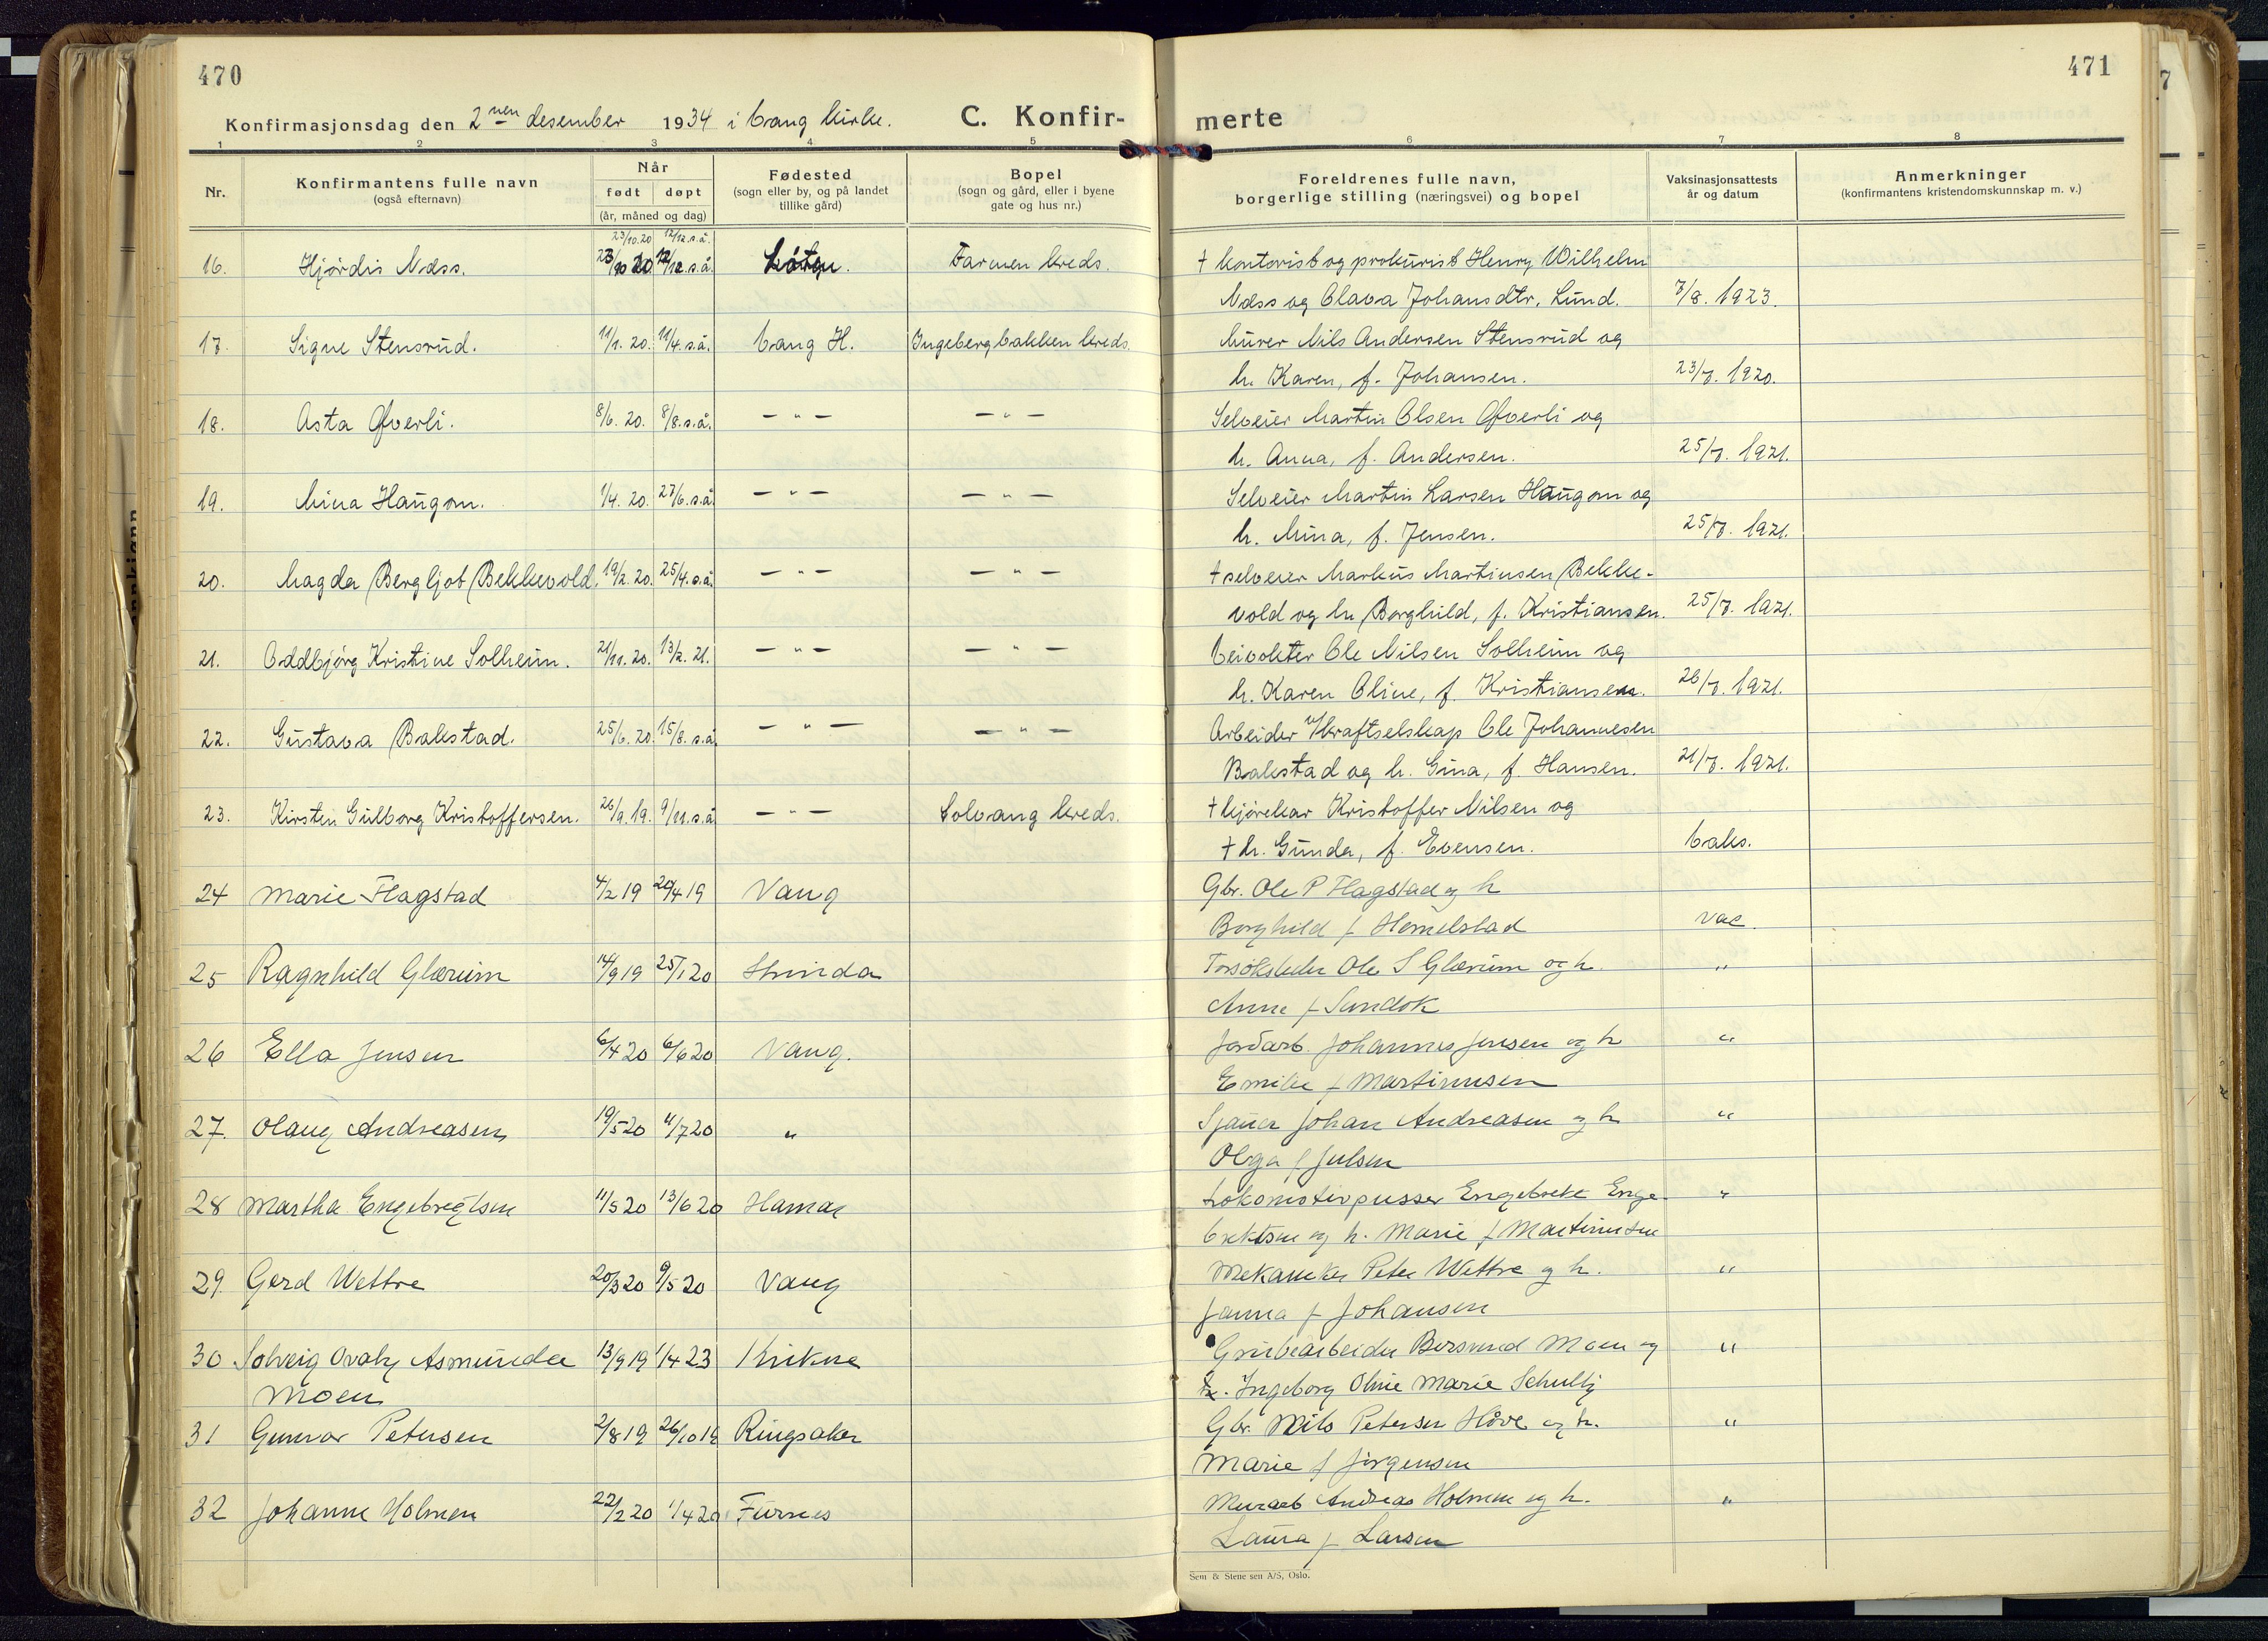 470
471
Konfirmasjonsdag den 2nen desember 1934 i Vang kirke. C. Konfir-
merte
1 2 3 4 5 6 7 8
Nr. Konfirmantens fulle navn (også efternavn) Når født døpt (år, måned og dag) Fødested (sogn eller by, og på landet tillike gård) Bopel (sogn og gård, eller i byene gate og hus nr.)
Foreldrenes fulle navn, borgerlige stilling (næringsvei) og bopel Vaksinasjonsattests år og datum Anmerkninger (konfirmantens kristendomskunnskap m. v.)
23/10.20 12/12.s.å.
16. Hjördis Næss. 23/10 20 12/12.s.å. Löten. Farmen kreds. † kontorist og prokurist Henry Wilhelm
Næss og Olava Johansdtr. Lund. 7/8. 1923.
17. Signe Stensrud. 11/1. 20. 11/4. s.å. Vang H. Ingebergbakken kreds. Murer Nils Andersen Stensrud og
h. Karen, f. Johansen. 23/7. 1920.
18. Asta Öfverli. 8/6. 20. 8/8. s.å. — " — — " — Selveier Martin Olsen Öfverli og
h. Anna, f. Andersen. 25/7. 1921.
19. Mina Haugom. 1/4. 20. 27/6. s.å. — " — — " — Selveier Martin Larsen Haugom og
h. Mina, f. Jensen. 25/7. 1921.
20. Magda Bergljot Bekkevold. 19/2. 20. 25/4. s.å. — " — — " — † selveier Markus Martinsen Bekke-
vold og h. Borghild, f. Kristiansen. 25/7. 1921.
21. Oddbjörg Kristine Solheim. 21/11. 20. 13/2. 21. — " — — " — Veivokter Ole Nilsen Solheim og
h. Karen Oline, f. Kristiansen. 26/7. 1921.
22. Gustava Bakstad. 25/6. 20. 15/8. s.å. — " — — " — Arbeider v/kraftselskap Ole Johannesen
Bakstad og h. Gina, f. Hansen. 21/7. 1921.
23. Kirsten Gulborg Kristoffersen. 26/9. 19. 9/11. s.å. — " — Solvang kreds. † kjörekar Kristoffer Nilsen og
† h. Gunda, f. Evensen. Vaks.
24 Marie Flagstad 4/2 19 20/4 19 Vang Gbr. Ole P Flagstad og h
Borghild f Hemelstad vac.
25 Ragnhild Glærum 14/9 19 25/1 20 Strinda Forsöksleder Ole S Glærum og h. "
Anne f Sundok
26 Ella Jensen 6/4 20 6/6 20 Vang. Jordarb. Johannes Jensen og h "
Emilie f Martinusen
27. Olaug Andreasen 19/5 20 4/7 20 " Sjauer Johan Andreasen og h "
Olga f Julsen
28 Martha Engebregtsen 11/5 20 13/6 20 Hamar Lokomotivpusser Engebrekt Enge- "
brektsen og h. Marie f Martinusen
29 Gerd Wettre 20/3 20 9/5 20 Vang Mekaniker Peter Wettre og h. "
Janna f Johansen
30 Solveig Asmunda 13/9 19 1/4 23 Grubearbeider Bersvend Moen og "
Moen h. Ingeborg Oline Marie
31 Gunvor Petersen 2/8 19 26/10 19 Ringsaker Gbr. Nils Petersen Hòve og h. "
Marie f Jörgensen
32 Johanne Holmen 22/2 20 1/4 20 Furnes Murarb Andreas Holmen og h. "
Laura f Larsen
Sem & Stenersen A/S, Oslo.